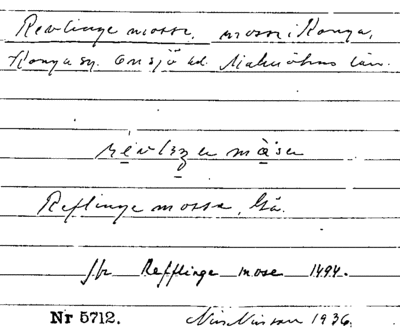 Revlinge mosse, mosse i Konga,
Konga sn. Onsjö hd. Malmöhus län.
Reflinge mosse, Gä.
jfr Refflinge mose 1494.
Nr 5712. Nils Nilsson 1936.